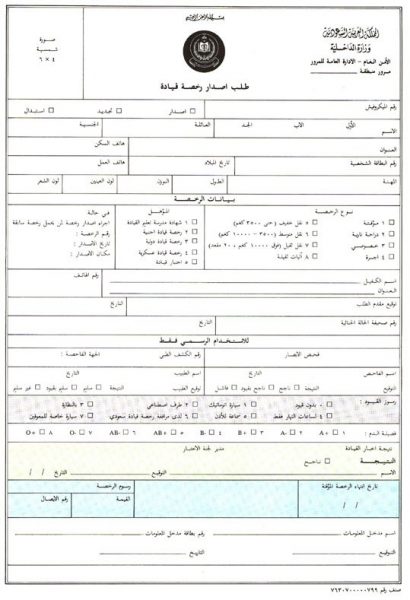 المملكة العربية السعودية
وزارة الداخلية
الأمن العام - الادارة العامة للمرور
مرور منطقة
صورة
شمسية
٤ × ٦
طلب اصدار رخصة قيادة
رقم الميكروفيش
اصدار
تجديد
استبدال
الأول
الأب
الجد
العائلة
الجنسية
العنوان
هاتف السكن
رقم البطاقة الشخصية
تاريخ الميلاد
هاتف العمل
المهنة
الطول
الوزن
لون العينين
لون الشعر
بيانات الرخصة
نوع الرخصة
١ مؤقتة
٢ دراجة نارية
٣ خصوصي
٤ اجرة
٥ نقل خفيف (حتى ٣٥٠٠ كغم)
٦ نقل متوسط (٣٥٠٠ - ١٠٠٠٠ كغم)
٧ نقل ثقيل (فوق ١٠٠٠٠ كغم، ٢٠ مقعد)
٨ آليات ثقيلة
المؤهل
١ شهادة مدرسة تعليم القيادة
٢ رخصة قيادة اجنبية
٣ رخصة قيادة دولية
٤ رخصة قيادة عسكرية
٥ اختبار قيادة
في حالة
اجراء اصدار رخصة لمن يحمل رخصة سابقة
رقم الرخصة :
تاريخ الاصدار :
مكان الاصدار :
اسم الكفيل
رقم الهاتف
العنوان
توقيع مقدم الطلب
التاريخ
رقم صحيفة الحالة الجنائية
التاريخ
للاستخدام الرسمي فقط
فحص الابصار
رقم الكشف الطبي
الجهة الفاحصة :
اسم الفاحص
اسم الطبيب
التاريخ
التوقيع
النتيجة
ناجح
ناجح بقيود
فاشل
توقيع الطبيب
النتيجة
سليم
سليم بقيود
غير سليم
رموز القيود :
٠ بدون قيود
١ سيارة اتوماتيك
٢ طرف اصطناعي
٣ بالنظارة
٤ لساعات النهار فقط
٥ سماعة للأذن
٦ لدى مرافقة رخصة قيادة سعودي
٧ سيارة خاصة للمعوقين
فصيلة الدم :
١ A+
٢ A-
٣ B+
٤ B-
٥ AB+
٦ AB-
٧ O-
٨ O+
نتيجة اختبار القيادة
مدير لجنة الاختبار
النتيجة
ناجح
الاسم
التوقيع
التاريخ / /
تاريخ انتهاء الرخصة المؤقتة
/ /
رسوم الرخصة
القيمة
رقم الايصال
اسم مدخل المعلومات
رقم بطاقة مدخل المعلومات
التوقيع
التاريخ
صنف رقم ٧٦٣٠٧٠٠٠٠٠٧٩٩